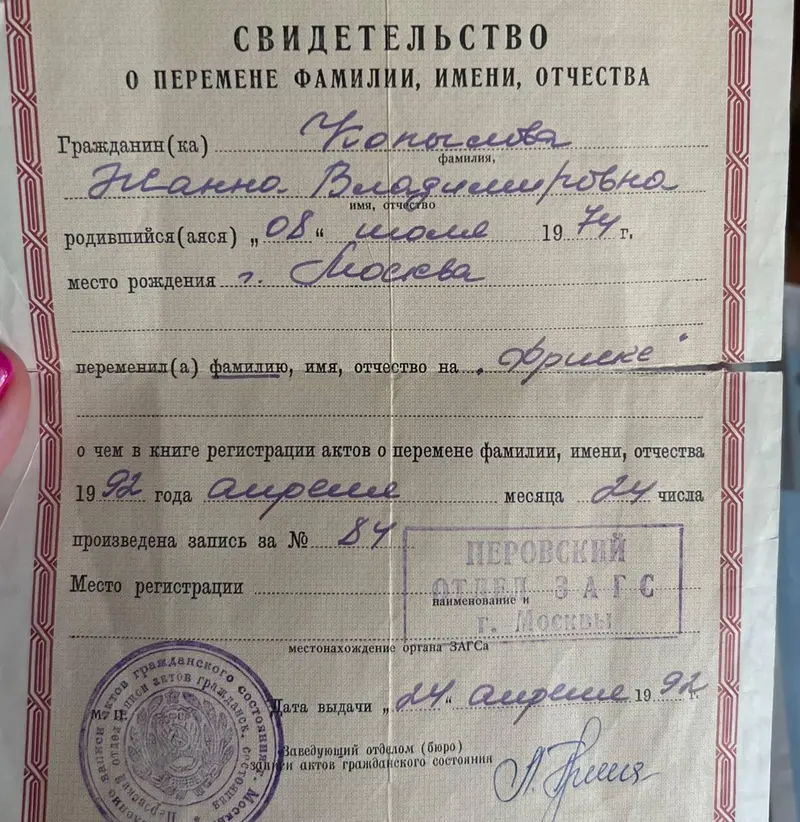 СВИДЕТЕЛЬСТВО
О ПЕРЕМЕНЕ ФАМИЛИИ, ИМЕНИ, ОТЧЕСТВА
Гражданин(ка) Копылова
фамилия,
Жанна Владимировна
имя, отчество
родившийся(аяся) „08“ июля 1974 г.
место рождения г. Москва
переменил(а) фамилию, имя, отчество на „Фриске"
о чем в книге регистрации актов о перемене фамилии, имени, отчества
1992 года апреля месяца 24 числа
произведена запись за № 84
ПЕРОВСКИЙ
ОТДЕЛ ЗАГС
г. Москвы
Место регистрации
наименование и
местонахождение органа ЗАГСа
М. П.
Дата выдачи „24“ апреля 1992 г.
Заведующий отделом (бюро)
записи актов гражданского состояния